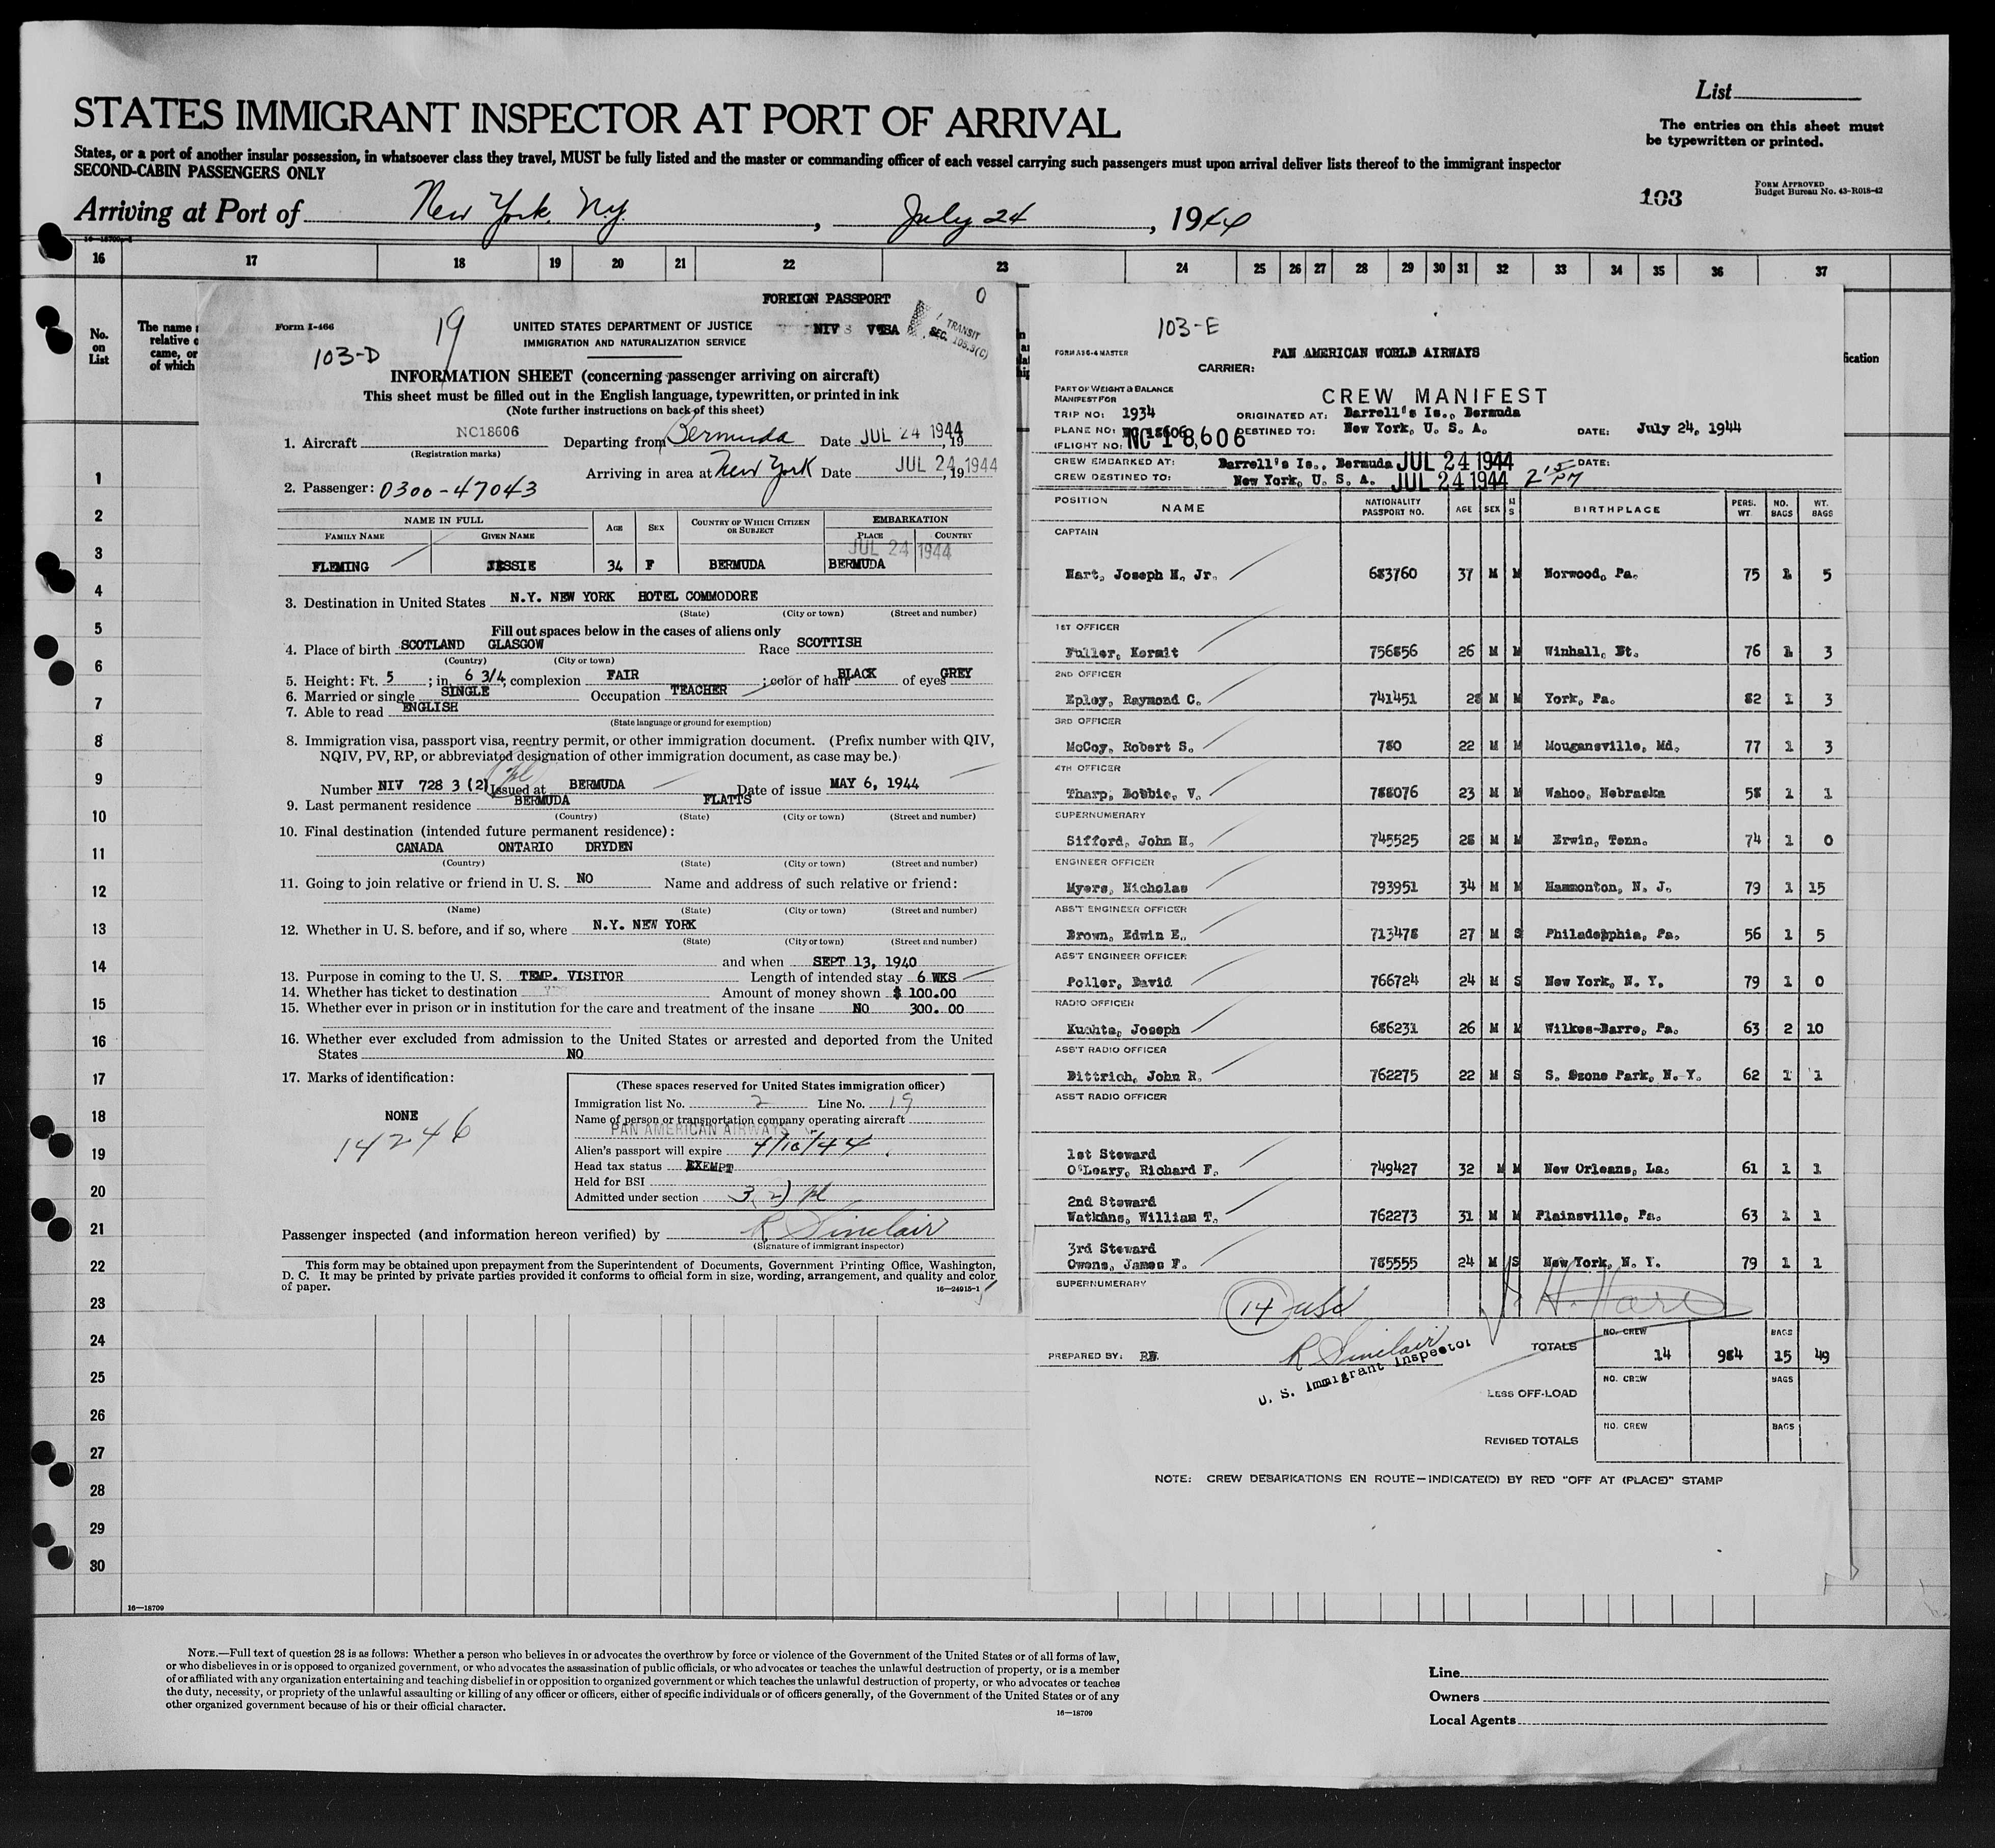 List
STATES IMMIGRANT INSPECTOR AT PORT OF ARRIVAL
The entries on this sheet must
be typewritten or printed.
States, or a port of another insular possession, in whatsoever class they travel, MUST be fully listed and the master or commanding officer of each vessel carrying such passengers must upon arrival deliver lists thereof to the immigrant inspector
SECOND-CABIN PASSENGERS ONLY
103
FORM APPROVED
Budget Bureau No. 43-R018-42
Arriving at Port of New York, N.Y. , July 24 , 1944
16 17 18 19 20 21 22 23 24 25 26 27 28 29 30 31 32 33 34 35 36 37
No.
on
List
The name
relative
came, or
of which
1
2
3
4
5
6
7
8
9
10
11
12
13
14
15
16
17
18
19
20
21
22
23
24
25
26
27
28
29
30
16—18709
FOREIGN PASSPORT
0
Form I-466
19
103-D
UNITED STATES DEPARTMENT OF JUSTICE
IMMIGRATION AND NATURALIZATION SERVICE
NIV VISA
TRANSIT
SEC. 105.3(C)
INFORMATION SHEET (concerning passenger arriving on aircraft)
This sheet must be filled out in the English language, typewritten, or printed in ink
(Note further instructions on back of this sheet)
1. Aircraft NC18606 Departing from Bermuda Date JUL 24 1944, 19
(Registration marks)
Arriving in area at New York Date JUL 24, 19 1944
2. Passenger: 0300-47043
NAME IN FULL AGE SEX COUNTRY OF WHICH CITIZEN OR SUBJECT EMBARKATION
FAMILY NAME GIVEN NAME PLACE COUNTRY
JUL 24 1944
FLEMING JESSIE 34 F BERMUDA BERMUDA
3. Destination in United States N.Y. NEW YORK HOTEL COMMODORE
(State) (City or town) (Street and number)
Fill out spaces below in the cases of aliens only
4. Place of birth SCOTLAND GLASGOW Race SCOTTISH
(Country) (City or town)
5. Height: Ft. 5 ; in. 6 3/4; complexion FAIR ; color of hair BLACK of eyes GREY
6. Married or single SINGLE Occupation TEACHER
7. Able to read ENGLISH
(State language or ground for exemption)
8. Immigration visa, passport visa, reentry permit, or other immigration document. (Prefix number with QIV,
NQIV, PV, RP, or abbreviated designation of other immigration document, as case may be.)
Number NIV 728 3 (2) Issued at BERMUDA Date of issue MAY 6, 1944
9. Last permanent residence BERMUDA FLATTS
(Country) (State) (City or town) (Street and number)
10. Final destination (intended future permanent residence):
CANADA ONTARIO DRYDEN
(Country) (State) (City or town) (Street and number)
11. Going to join relative or friend in U. S. NO Name and address of such relative or friend:
(Name) (State) (City or town) (Street and number)
12. Whether in U. S. before, and if so, where N.Y. NEW YORK
(State) (City or town) (Street and number)
and when SEPT 13, 1940
13. Purpose in coming to the U. S. TEMP. VISITOR Length of intended stay 6 WKS
14. Whether has ticket to destination Amount of money shown $ 100.00
15. Whether ever in prison or in institution for the care and treatment of the insane NO 300.00
16. Whether ever excluded from admission to the United States or arrested and deported from the United
States NO
17. Marks of identification:
NONE
14246
(These spaces reserved for United States immigration officer)
Immigration list No. 2 Line No. 19
Name of person or transportation company operating aircraft
PAN AMERICAN AIRWAYS
Alien's passport will expire 4/18/44
Head tax status EXEMPT
Held for BSI
Admitted under section 3(2)
Passenger inspected (and information hereon verified) by R Sinclair
(Signature of immigrant inspector)
This form may be obtained upon prepayment from the Superintendent of Documents, Government Printing Office, Washington,
D. C. It may be printed by private parties provided it conforms to official form in size, wording, arrangement, and quality and color
of paper.
16—24915-1
103-E
FORM A36-4 MASTER
PAN AMERICAN WORLD AIRWAYS
CARRIER:
PART OF WEIGHT & BALANCE
MANIFEST FOR
CREW MANIFEST
TRIP NO: 1934 ORIGINATED AT: Darrell's Is., Bermuda
PLANE NO: NC 18606 DESTINED TO: New York, U. S. A. DATE: July 24, 1944
(FLIGHT NO: NC 18,606
CREW EMBARKED AT: Darrell's Is., Bermuda JUL 24 1944 DATE:
CREW DESTINED TO: New York, U. S. A. JUL 24 1944 2 15 PM
POSITION NAME NATIONALITY PASSPORT NO. AGE SEX M S BIRTHPLACE PERS. WT. NO. BAGS WT. BAGS
CAPTAIN
Hart, Joseph H. Jr. 683760 37 M M Norwood, Pa. 75 1 5
1ST OFFICER
Fuller, Kermit 756856 26 M M Winhall, Bt. 76 1 3
2ND OFFICER
Epley, Raymond C. 741451 28 M M York, Pa. 82 1 3
3RD OFFICER
McCoy, Robert S. 780 22 M M Mougansville, Md. 77 1 3
4TH OFFICER
Tharp, Bobbie, V. 788076 23 M M Wahoo, Nebraska 58 1 1
SUPERNUMERARY
Sifford, John H. 745525 28 M M Erwin, Tenn. 74 1 0
ENGINEER OFFICER
Myers, Nicholas 793951 34 M M Hammonton, N. J. 79 1 15
ASS'T ENGINEER OFFICER
Brown, Edwin E. 713478 27 M S Philadephhia, Pa. 56 1 5
ASS'T ENGINEER OFFICER
Poller, David 766724 24 M S New York, N. Y. 79 1 0
RADIO OFFICER
Kuahta, Joseph 686231 26 M M Wilkes-Barre, Pa. 63 2 10
ASS'T RADIO OFFICER
Dittrich, John R. 762275 22 M S S. Ozone Park, N. Y. 62 1 1
ASS'T RADIO OFFICER
1st Steward
O'Leary, Richard F. 749427 32 M M New Orleans, La. 61 1 1
2nd Steward
Watkins, William T. 762273 31 M M Plainsville, Pa. 63 1 1
3rd Steward
Owens, James F. 785555 24 M S New York, N. Y. 79 1 1
SUPERNUMERARY
14 usc
PREPARED BY: RW.
R Sinclair
U. S. Immigrant Inspector
TOTALS NO. CREW 14 984 BAGS 15 49
LESS OFF-LOAD NO. CREW BAGS
REVISED TOTALS NO. CREW BAGS
NOTE: CREW DEBARKATIONS EN ROUTE—INDICATE(D) BY RED "OFF AT (PLACE)" STAMP
NOTE.—Full text of question 28 is as follows: Whether a person who believes in or advocates the overthrow by force or violence of the Government of the United States or of all forms of law,
or who disbelieves in or is opposed to organized government, or who advocates the assassination of public officials, or who advocates or teaches the unlawful destruction of property, or is a member
of or affiliated with any organization entertaining and teaching disbelief in or opposition to organized government or which teaches the unlawful destruction of property, or who advocates or teaches
the duty, necessity, or propriety of the unlawful assaulting or killing of any officer or officers, either of specific individuals or of officers generally, of the Government of the United States or of any
other organized government because of his or their official character.
16—18709
Line
Owners
Local Agents